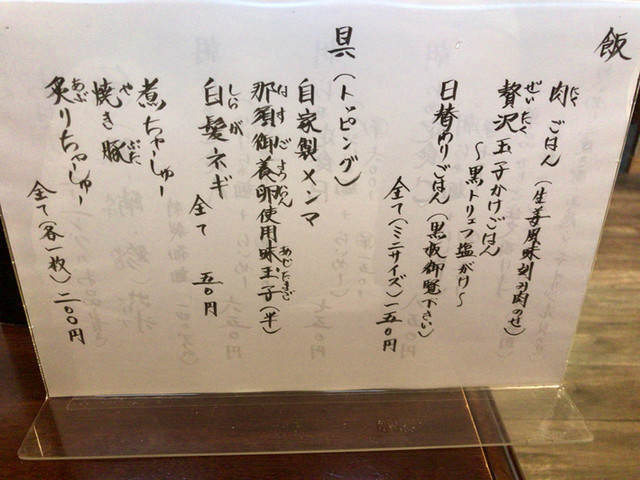 飯
肉ごはん(生姜風味刻み肉のせ)
贅沢玉子かけごはん
～黒トリュフ塩がけ～
日替わりごはん(黒板御覧下さい)
全て(ミニサイズ)一五〇円
具(トッピング)
自家製メンマ
那須御養卵使用味玉子(半)
白髪ネギ
全て 五〇円
煮ちゃーしゅー
焼き豚
炙りちゃーしゅー
全て(各一枚)二〇〇円